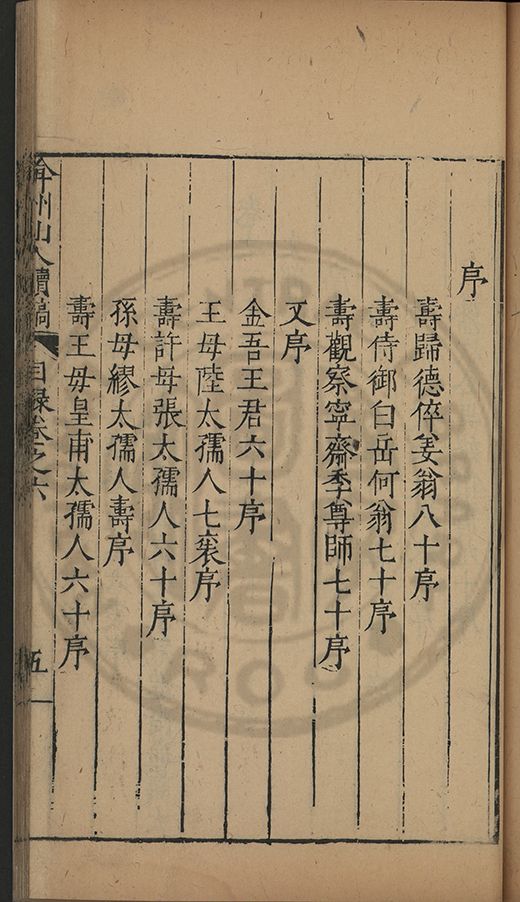 序
壽歸德倅姜翁八十序
壽侍御白岳何翁七十序
壽觀察寧齋季尊師七十序
又序
金吾王君六十序
王母陸太孺人七袠序
壽許母張太孺人六十序
孫母繆太孺人壽序
壽王母皇甫太孺人六十序
弇州山人續稿 目錄卷之六 五